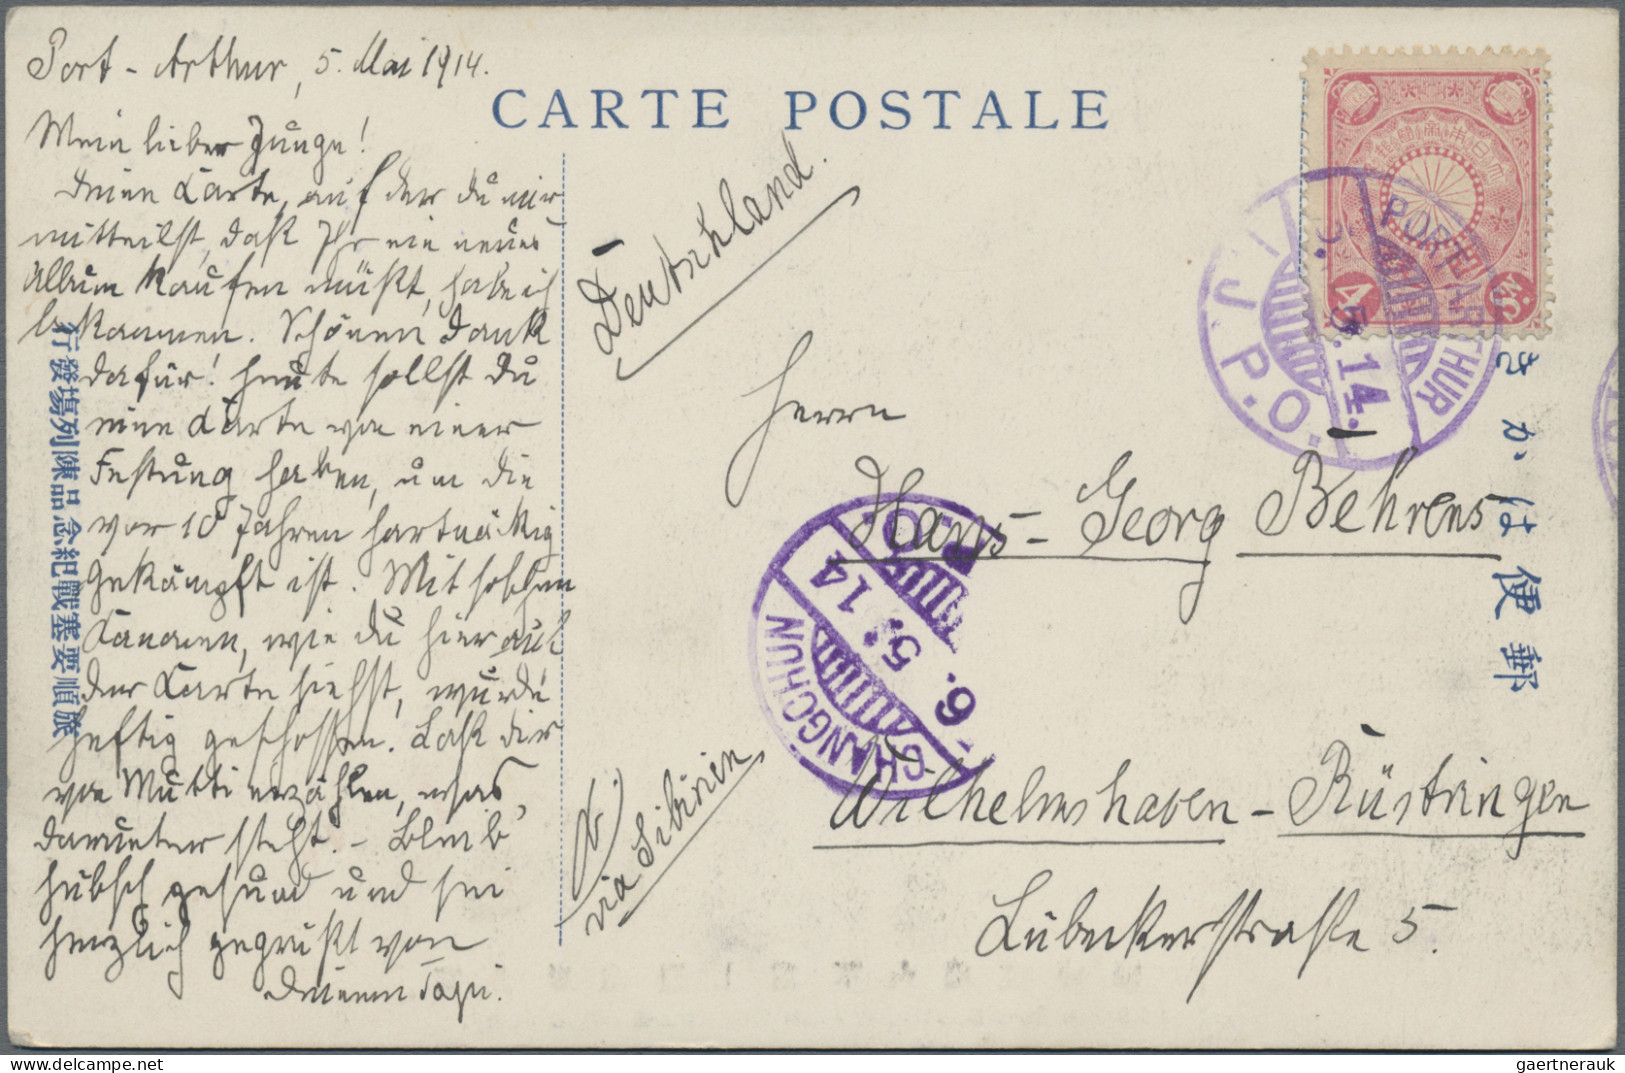 Port-Arthur, 5. Mai 1914.
Mein lieber Junge!
Deine Karte, auf der du mir
mitteilst, daß Ihr ein neues
Album kaufen müßt, habe ich
bekommen. Schönen Dank
dafür! Heute sollst Du
eine Karte von einer
Festung haben, um die
vor 10 Jahren hartnäckig
gekämpft ist. Mit solchen
Kanonen, wie du hier auf
der Karte siehst, wurde
heftig geschossen. Laß dir
von Mutti erzählen, was
darunter steht. - Bleib'
hübsch gesund und sei
herzlich gegrüßt von
Deinem Papi.
CARTE POSTALE
Deutschland.
via Sibirien
Herrn
Hans-Georg Behrens
Wilhelmshaven-Rüstringen
Lübeckerstraße 5.
郵便はかき
旅順要塞戰紀念品陳列場發行
大日本帝國郵便
4 Sn.
PORT ARTHUR
5.14.
I.J.P.O.
CHANGCHUN
6.5.14
gaertnerauk